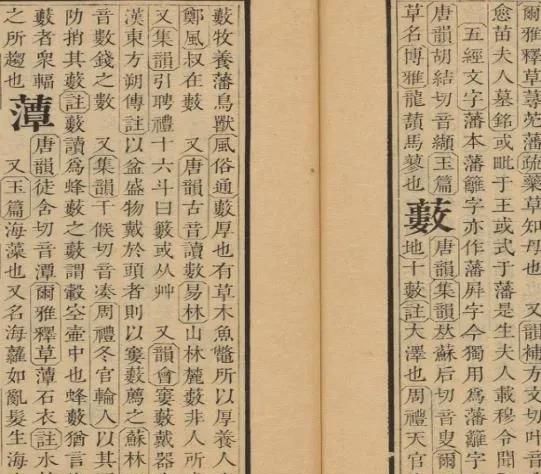 爾雅釋草蕁莐藩疏藥草知母也 又韻補方文切叶音
愈苗夫人墓銘或毗于王或式于藩是生夫人載穆令聞
五經文字藩本藩籬字亦作藩屏字今獨用爲藩籬字
唐韻胡結切音纈玉篇
草名博雅龍䕸馬蓼也
藪
唐韻集韻𠀤蘇后切音叟爾
地十藪註大澤也周禮天官
藪牧養藩鳥獸風俗通藪厚也有草木魚鼈所以厚養人
鄭風叔在藪 又唐韻古音讀數易林山林麓藪非人所
又集韻引聘禮十六斗曰籔或从艸 又韻會寠藪戴器
漢東方朔傳註以盆盛物戴於頭者則以寠藪薦之蘇林
音數錢之數 又集韻千候切音凑周禮冬官輪人以其
防捎其藪註藪讀爲蜂藪之藪謂轂空壷中也蜂藪猶言
藪者衆輻
之所趨也
藫
唐韻徒含切音潭爾雅釋草藫石衣註水
又玉篇海藻也又名海蘿如亂髮生海